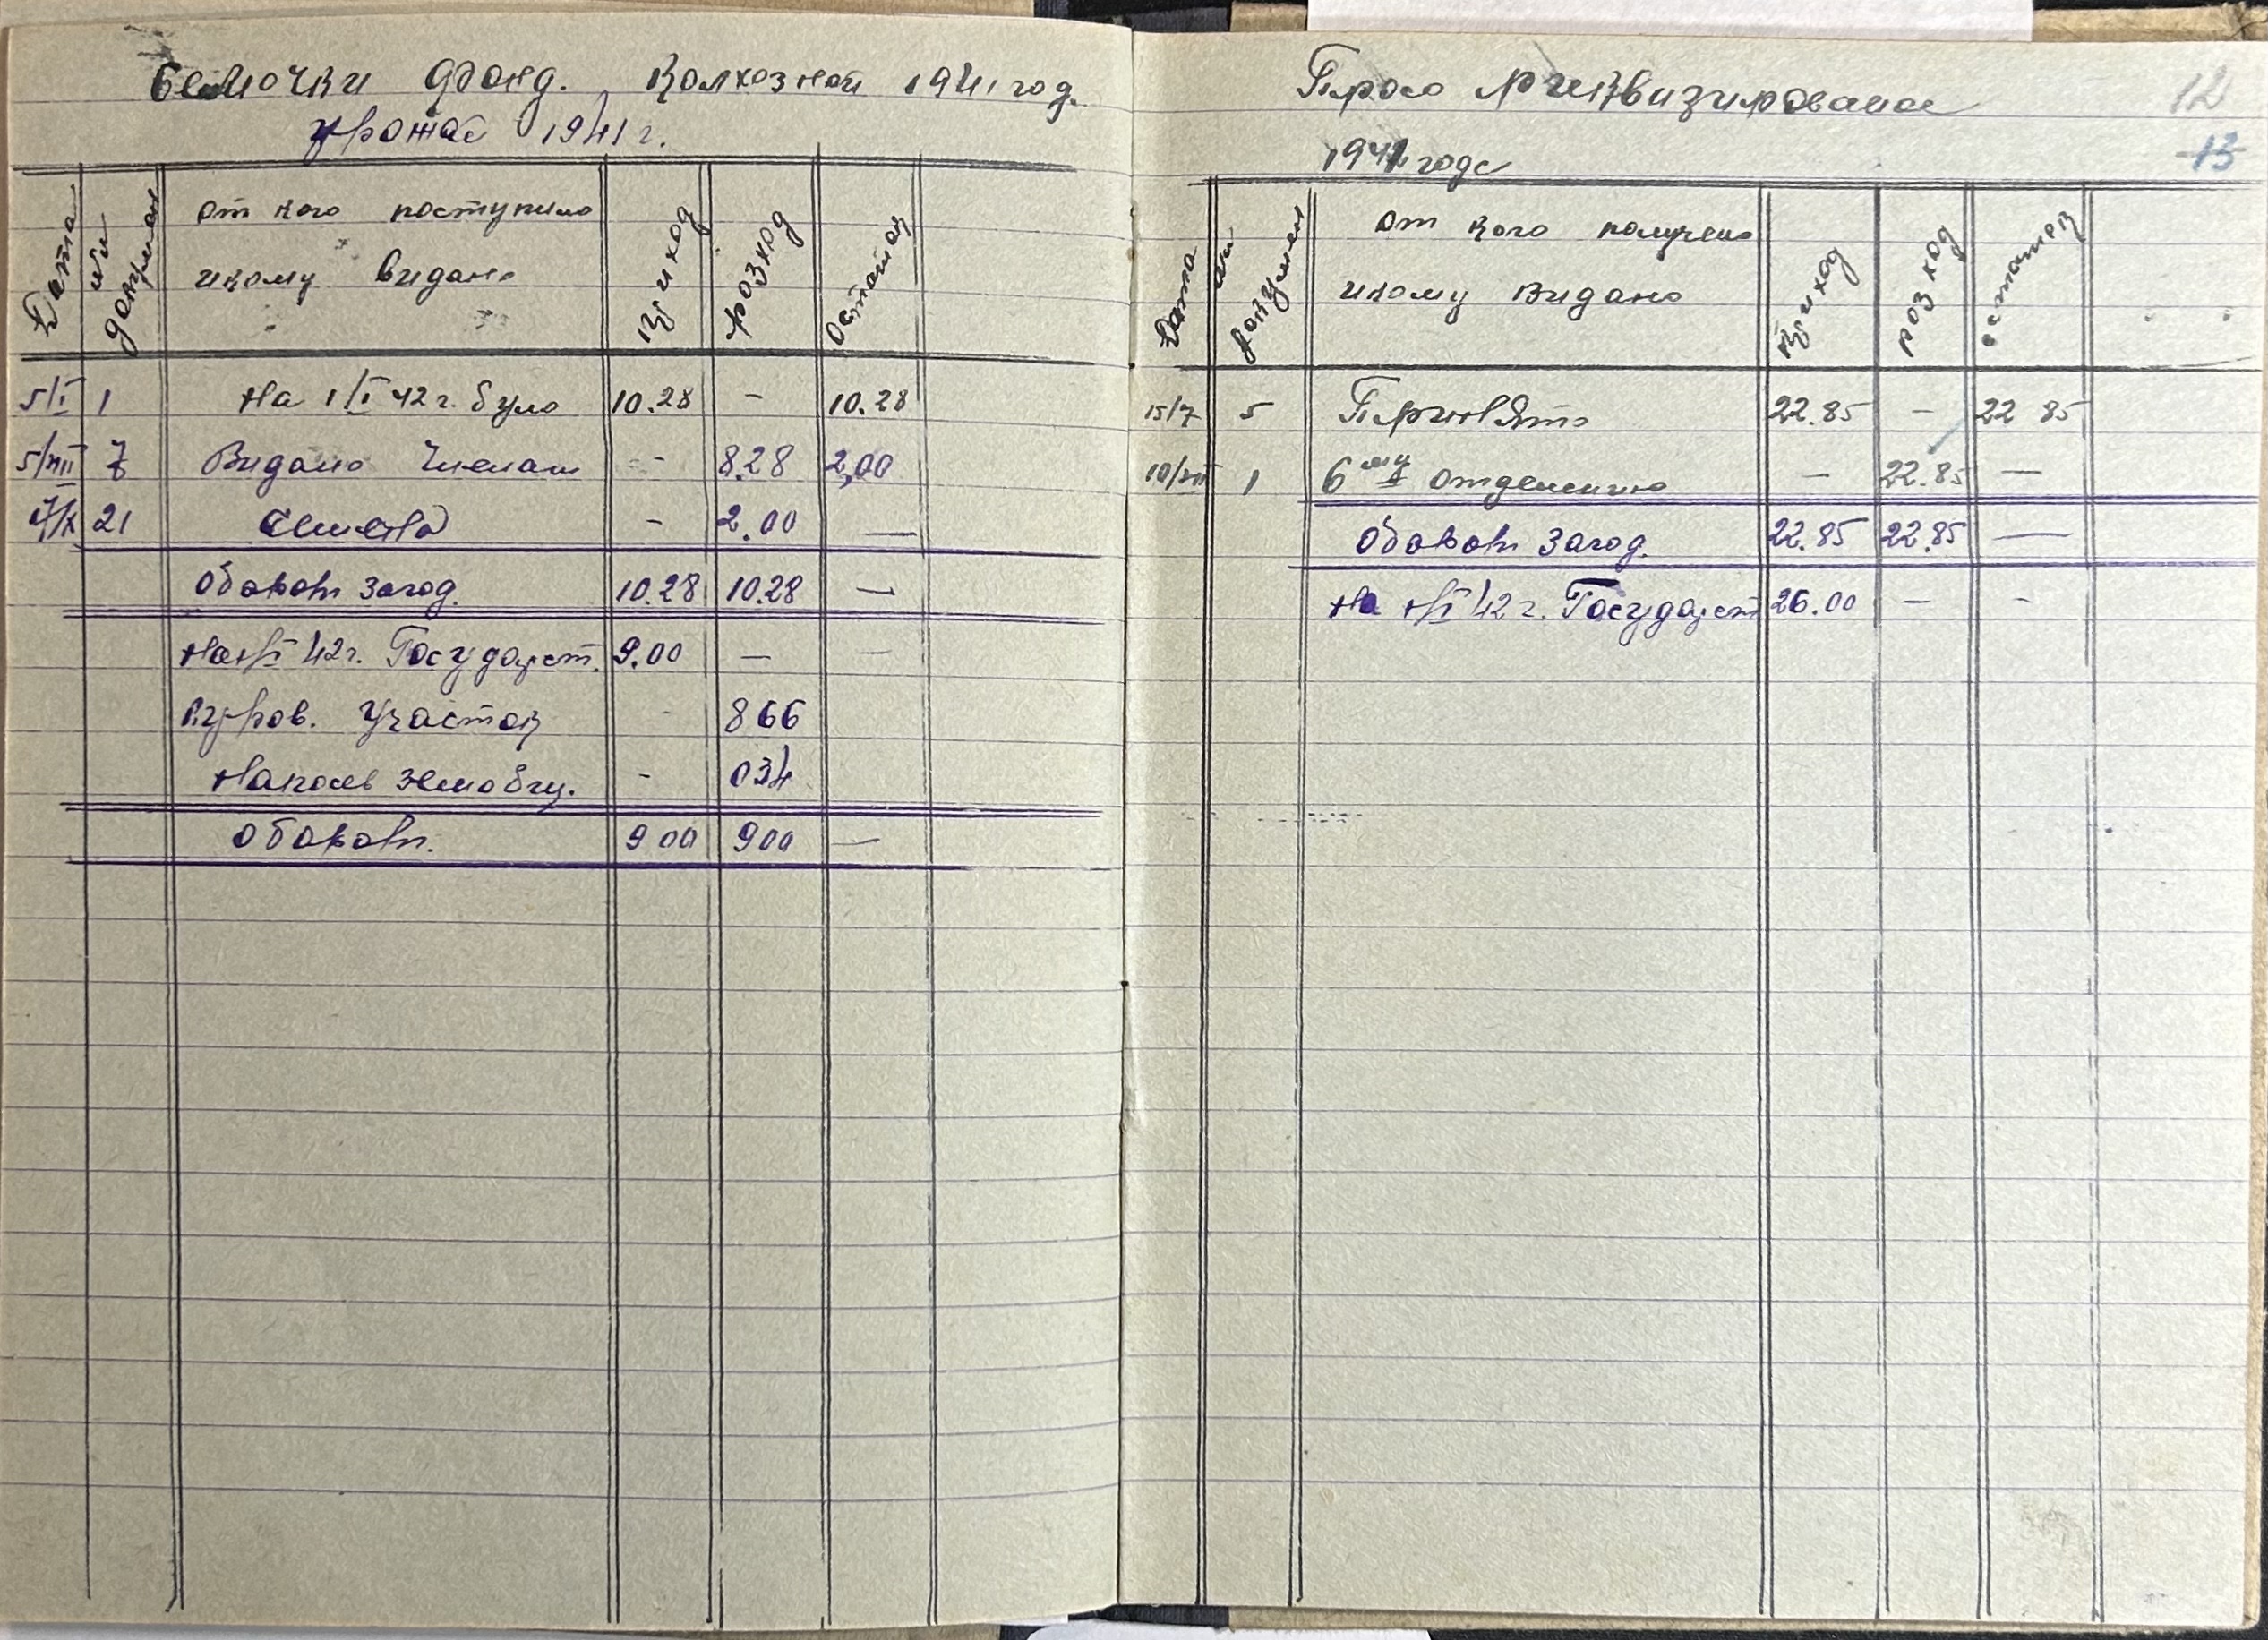 Семочки фонд. Колхозной 1941 год.
урожас 1941 г.
Дата
№№ докумен
От кого поступило
икому видано
Приход
розход
Остаток
5/I 1 На 1/I 42 г. було 10.28 - 10.28
5/VIII 7 Видано Членам - 8.28 2,00
21 Семена - 2.00 —
Оборот Загод. 10.28 10.28 —
42 г. Государст. 9.00 — —
Участок - 866
034
Оборот. 9 00 9 00 —
Просо
12
1941 годс
13
Дата
докумен
От кого получено
икому Видано
Приход
розход
остаток
15/7 5 Принято 22.85 - 22 85
1 6 му отделению — 22.85 —
Оборот Загод. 22.85 22.85 —
На 42 г. Государст 26.00 — -